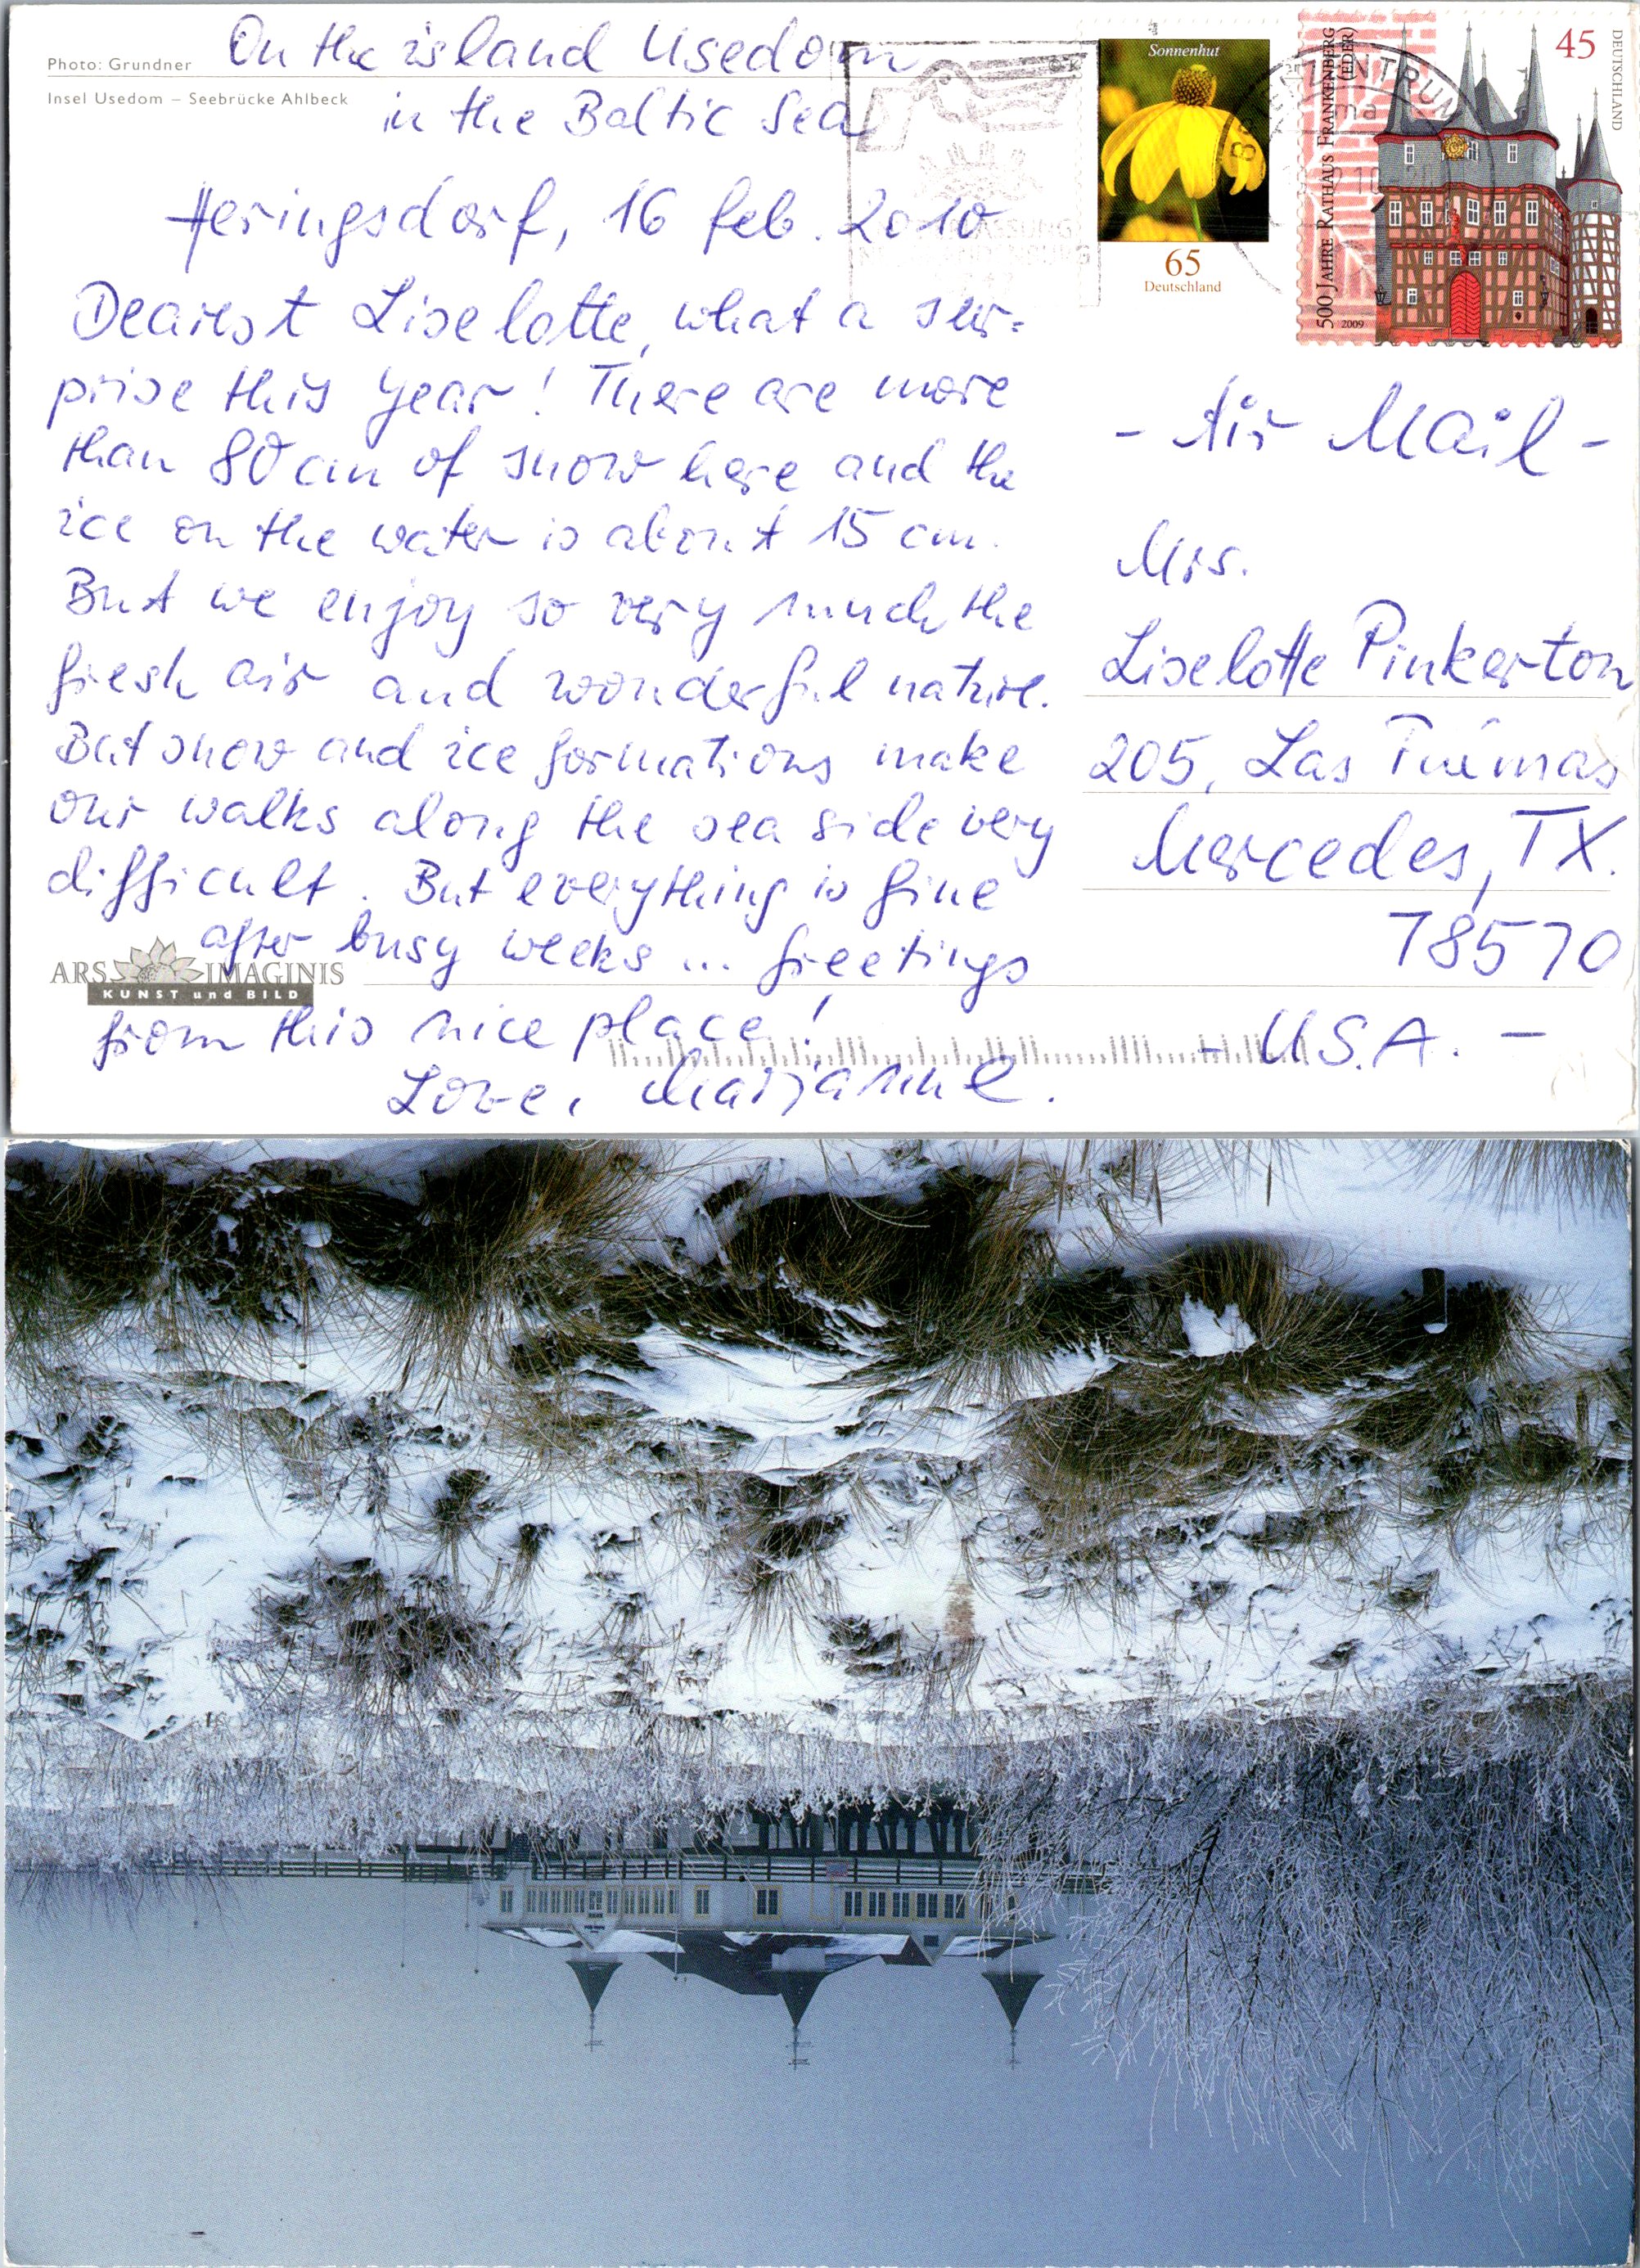 Photo: Grundner
Insel Usedom – Seebrücke Ahlbeck
On the island Usedom
in the Baltic Sea
Heringsdorf, 16 feb. 2010
Dearest Liselotte, what a sur=
prise this year! There are more
than 80 cm of snow here and the
ice on the water is about 15 cm.
But we enjoy so very much the
fresh air and wonderful nature.
But snow and ice formations make
our walks along the sea side very
difficult. But everything is fine
after busy weeks ... greetings
from this nice place!
Love, Marianne.
ARS IMAGINIS
KUNST und BILD
Sonnenhut
65
Deutschland
500 JAHRE RATHAUS FRANKENBERG
(EDER)
2009
45
DEUTSCHLAND
BRIEFZENTRUM
- Air Mail -
Mrs.
Liselotte Pinkerton
205, Las
Mercedes, TX.
78570
- U.S.A. -